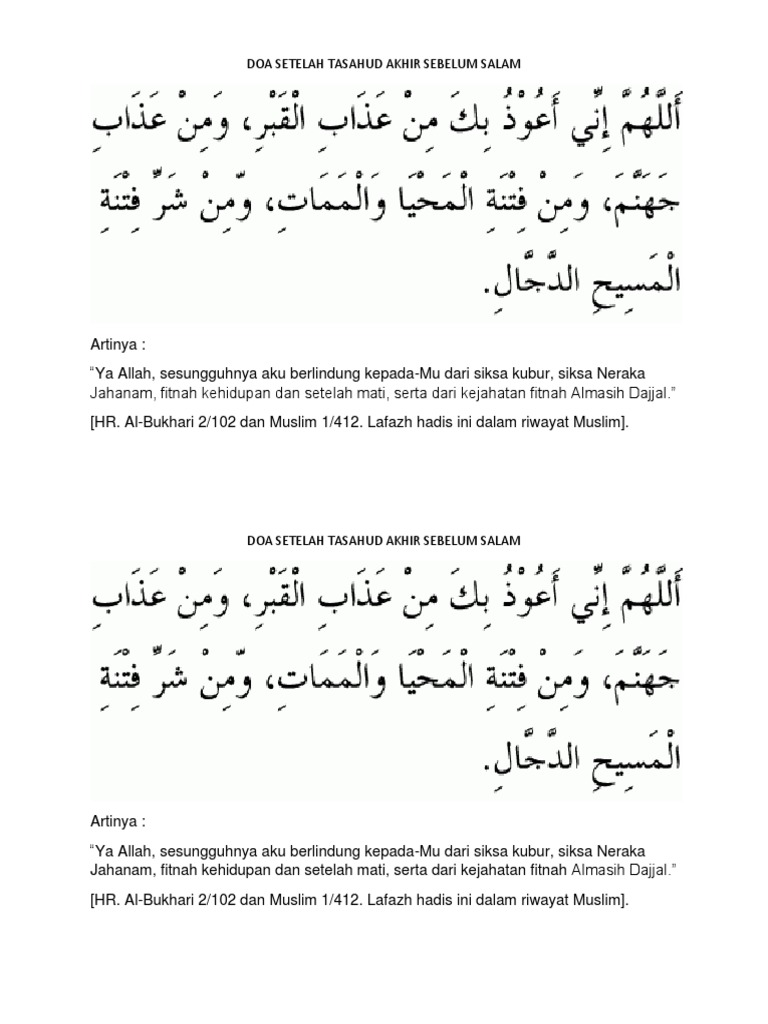 DOA SETELAH TASAHUD AKHIR SEBELUM SALAM
أَللَّهُمَّ إِنِّي أَعُوْذُ بِكَ مِنْ عَذَابِ الْقَبْرِ، وَمِنْ عَذَابِ
جَهَنَّمَ، وَمِنْ فِتْنَةِ الْمَحْيَا وَالْمَمَاتِ، وَمِنْ شَرِّ فِتْنَةِ
الْمَسِيحِ الدَّجَّالِ.
Artinya :
“Ya Allah, sesungguhnya aku berlindung kepada-Mu dari siksa kubur, siksa Neraka
Jahanam, fitnah kehidupan dan setelah mati, serta dari kejahatan fitnah Almasih Dajjal.”
[HR. Al-Bukhari 2/102 dan Muslim 1/412. Lafazh hadis ini dalam riwayat Muslim].
DOA SETELAH TASAHUD AKHIR SEBELUM SALAM
أَللَّهُمَّ إِنِّي أَعُوْذُ بِكَ مِنْ عَذَابِ الْقَبْرِ، وَمِنْ عَذَابِ
جَهَنَّمَ، وَمِنْ فِتْنَةِ الْمَحْيَا وَالْمَمَاتِ، وَمِنْ شَرِّ فِتْنَةِ
الْمَسِيحِ الدَّجَّالِ.
Artinya :
“Ya Allah, sesungguhnya aku berlindung kepada-Mu dari siksa kubur, siksa Neraka
Jahanam, fitnah kehidupan dan setelah mati, serta dari kejahatan fitnah Almasih Dajjal.”
[HR. Al-Bukhari 2/102 dan Muslim 1/412. Lafazh hadis ini dalam riwayat Muslim].